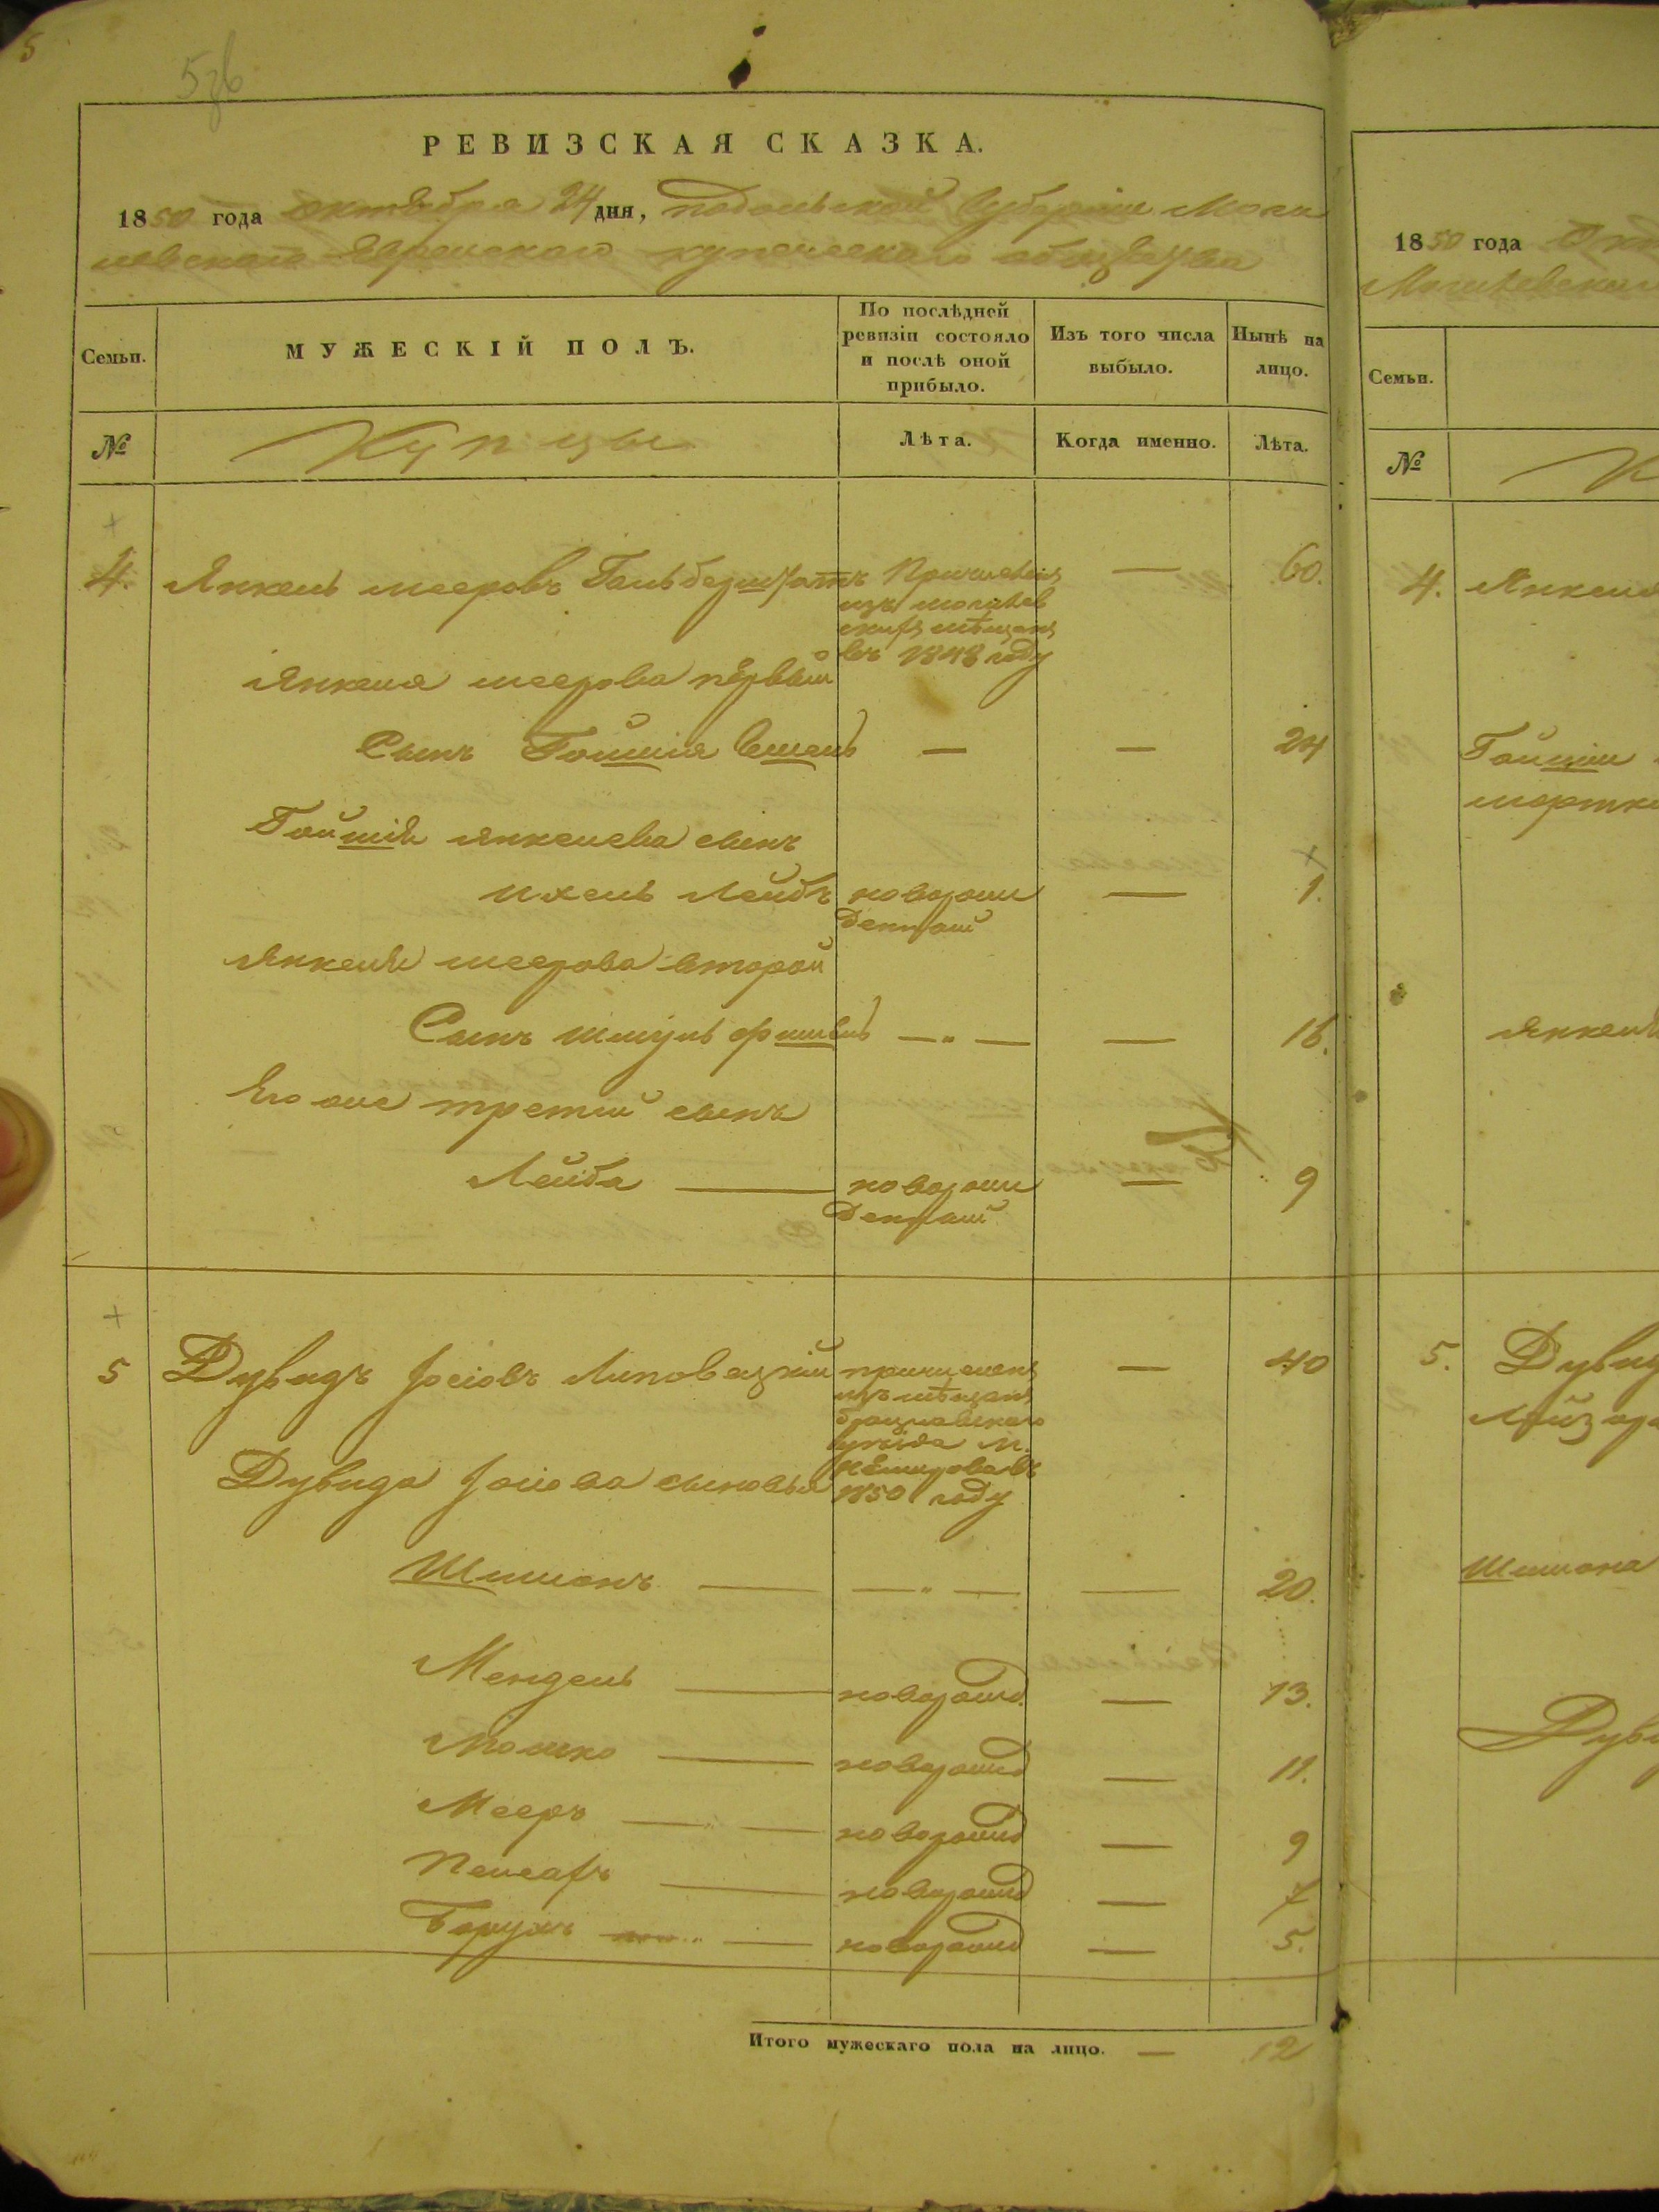 5
РЕВИЗСКАЯ СКАЗКА.
1850 года октября 24 дня, подольской губернии Моги
левскаго Еврейскаго купеческаго общества
Семьи.
МУЖЕСКІЙ ПОЛЪ.
По послѣдней
ревизіи состояло
и послѣ оной
прибыло.
Изъ того числа
выбыло.
Нынѣ на
лицо.
№
Купцы
Лѣта.
Когда именно.
Лѣта.
4. Янкель Мееровъ Гольберштатъ Причисленъ — 60.
изъ могилев
скихъ мѣщанъ
въ 1848 году
Янкеля меерова первый
Сынъ Гойшія — — 24
Гойшіи янкелева сынъ
Ихель Лейбъ новорож — 1.
денный
Янкеля меерова второй
Сынъ Шмуль Фишель — „ — — 16.
Его же третій сынъ
Лейба — новорож — 9
денный
5 Дувидъ Іосіовъ Липовецкій причисленъ — 40
изъ мѣщанъ
брацлавскаго
уѣзда м.
Немировавъ
1850 году
Дувида Іосіова сыновья
Шимонъ — — „ — — 20.
Мендель — новорожд — 13.
Мошко — новорожд — 11.
Мееръ — „ — новорожд — 9
Пейсахъ — новорожд — 7
Борухъ — новорожд — 5.
Итого мужескаго пола на лицо. — 12
1850 года
Семьи.
№
4.
5. Дувид
Шимона
Дуви